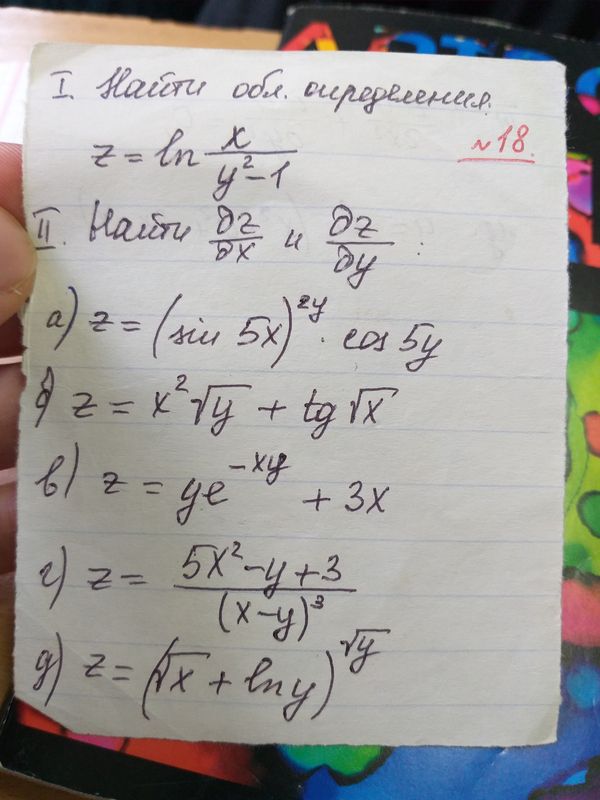 I. Найти обл. определения.
№18.
z = ln x/(y²-1)
II. Найти ∂z/∂x и ∂z/∂y :
а) z = (sin 5x)^{2y} · cos 5y
б) z = x²√y + tg √x
в) z = ye^{-xy} + 3x
г) z = (5x²-y+3)/(x-y)³
д) z = (√x + ln y)^{√y}